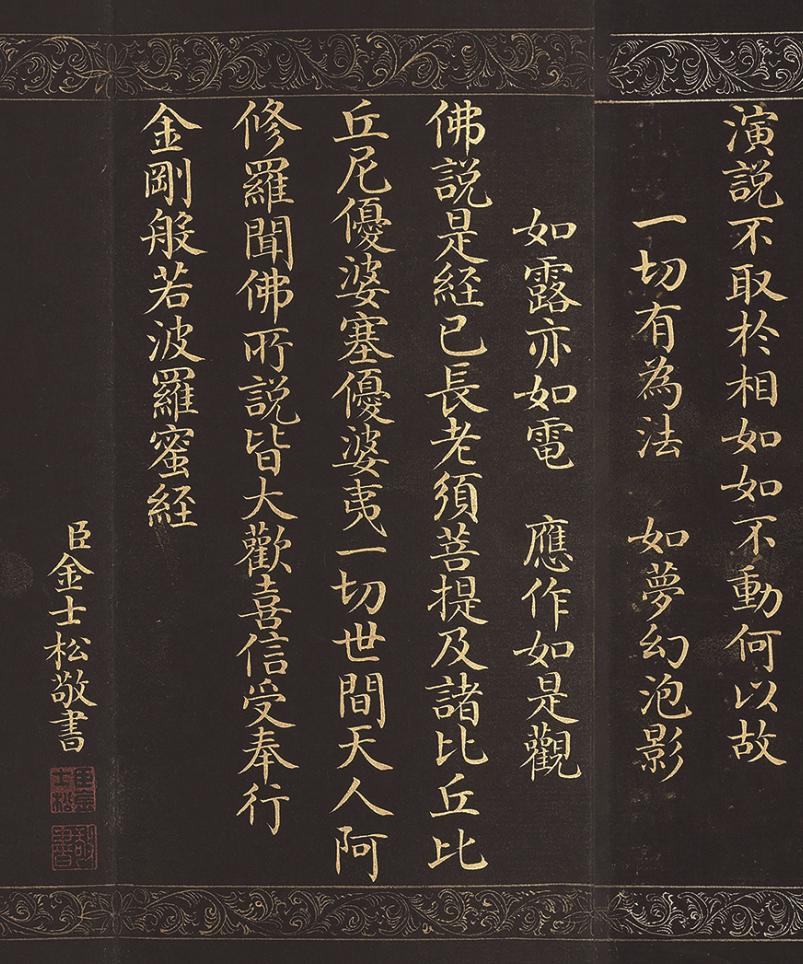 演説不取於相如如不動何以故
一切有為法　如夢幻泡影
如露亦如電　應作如是觀
佛説是経已長老須菩提及諸比丘比
丘尼優婆塞優婆夷一切世間天人阿
修羅聞佛所説皆大歡喜信受奉行
金剛般若波羅蜜経
臣金士松敬書
臣金士松
敬書